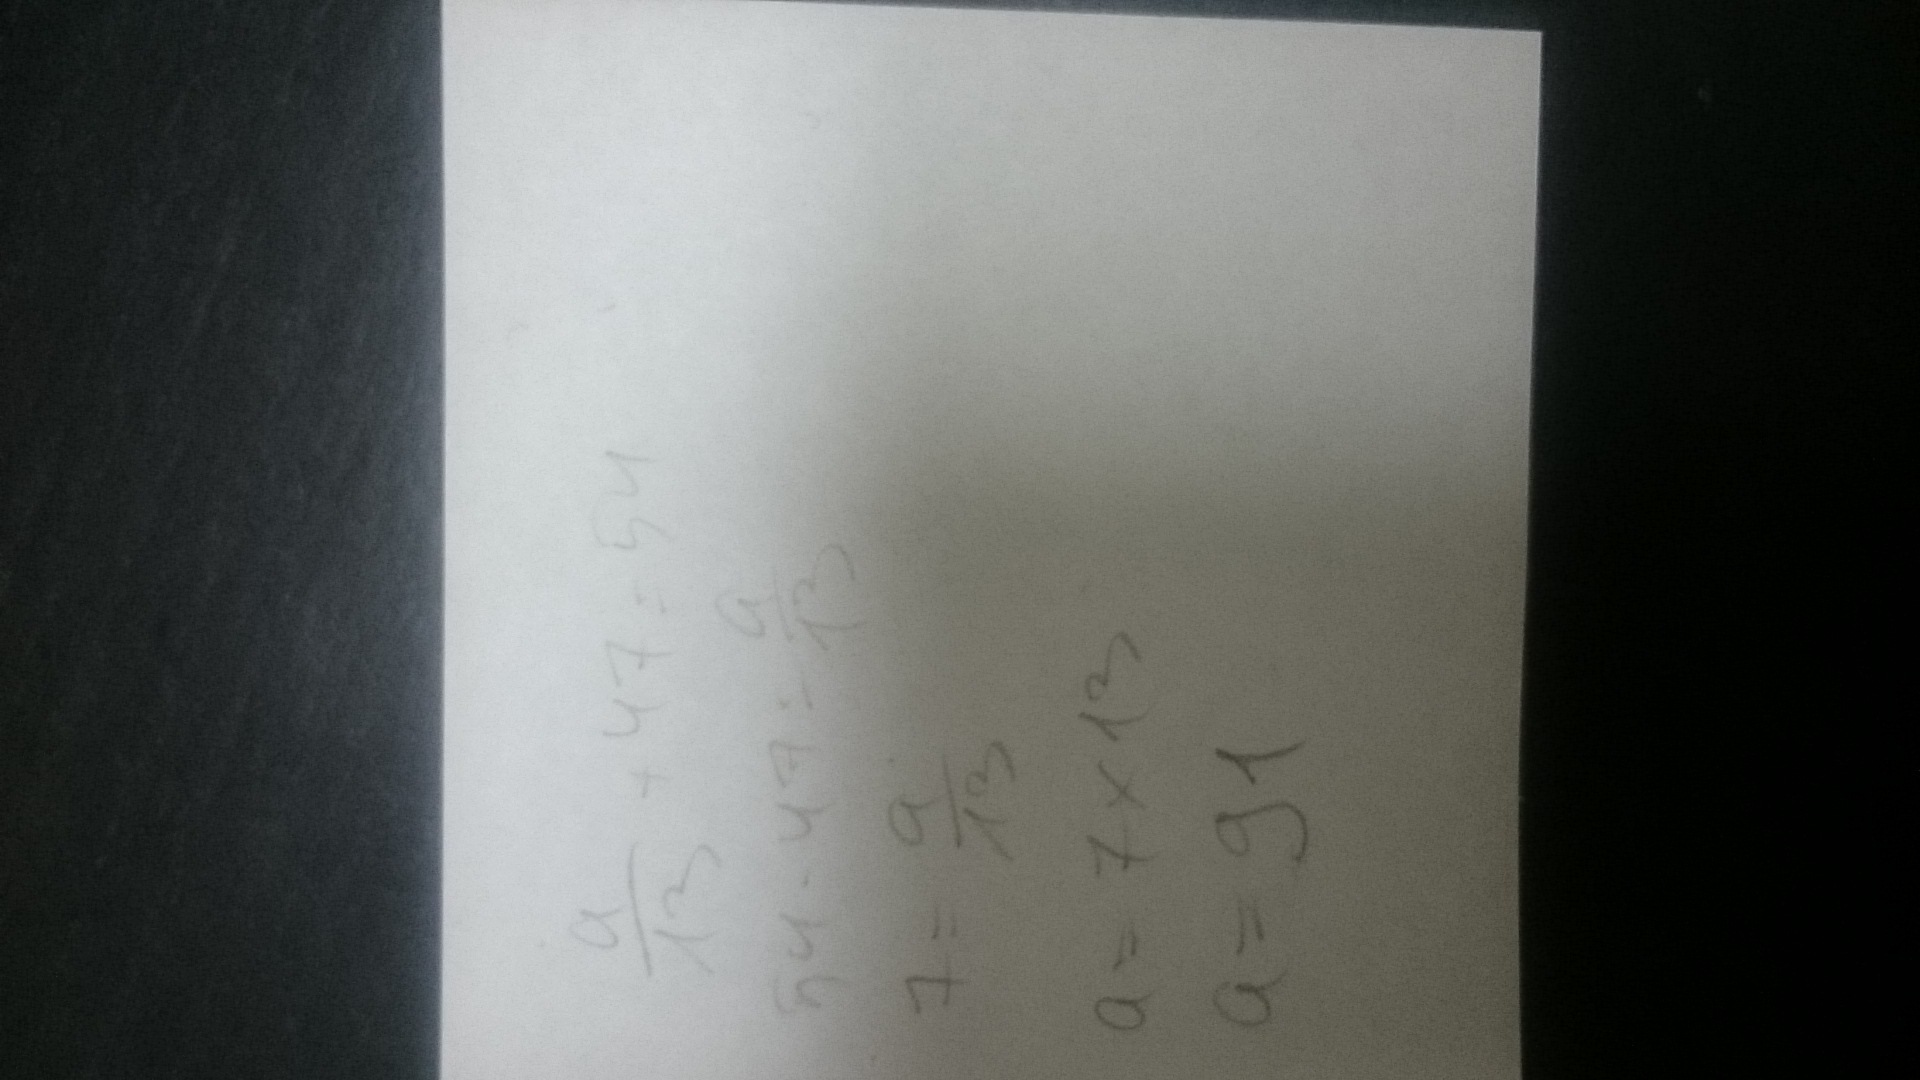 a/13 + 47 = 54
54 - 47 = a/13
7 = a/13
a = 7 x 13
a = 91